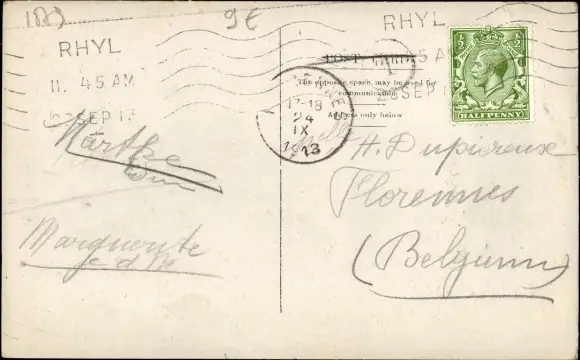 180
9€
RHYL
11. 45 AM
23 SEP 13
RHYL
45 AM
23 SEP 1
POST CARD
The opposite space may be used for
communication
Address only below
HALFPENNY
17-18
24
IX
1913
Marthe
Marguerite
e d M
H. Dupiereux
Florennes
(Belgium)